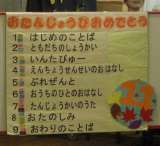 おたんじょうびおめでとう
1 はじめのことば
2 ともだちのしょうかい
3 いんたびゅー
4 えんちょうせんせいのおはなし
5 ぷれぜんと
6 おうちのひとのおはなし
7 たんじょうかいのうた
8 おたのしみ
9 おわりのことば